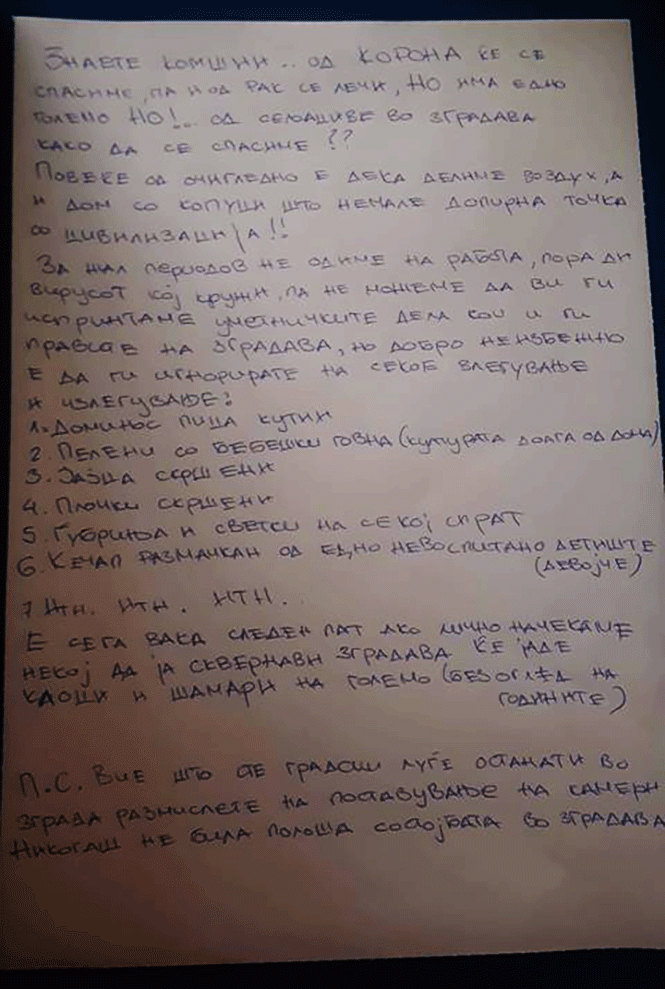 ЗНАЕТЕ КОМШИИ .. ОД КОРОНА ЌЕ СЕ
СПАСИМЕ, ПА И ОД РАК СЕ ЛЕЧИ, НО ИМА ЕДНО
ГОЛЕМО НО!... ОД СЕЉАЦИВЕ ВО ЗГРАДАВА
КАКО ДА СЕ СПАСИМЕ ??
ПОВЕЌЕ ОД ОЧИГЛЕДНО Е ДЕКА ДЕЛИМЕ ВОЗДУХ, А
И ДОМ СО КОПУЦИ ШТО НЕМАЛЕ ДОПИРНА ТОЧКА
СО ЦИВИЛИЗАЦИЈА!!
ЗА ЖАЛ ПЕРИОДОВ НЕ ОДИМЕ НА РАБОТА, ПОРАДИ
ВИРУСОТ КОЈ КРУЖИ, ПА НЕ МОЖЕМЕ ДА ВИ ГИ
ИСПРИНТАМЕ УМЕТНИЧКИТЕ ДЕЛА КОИ И ГИ
ПРАВИТЕ НА ЗГРАДАВА, НО ДОБРО НЕИЗБЕЖНО
Е ДА ГИ ИГНОРИРАТЕ НА СЕКОЕ ВЛЕГУВАЊЕ
И ИЗЛЕГУВАЊЕ:
1. ДОМИНОС ПИЦА КУТИИ
2. ПЕЛЕНИ СО БЕБЕШКИ ГОВНА (КУЛТУРАТА ДОАЃА ОД ДОМА)
3. ЗАЈЦА СКРШЕНИ
4. ПЛОЧКИ СКРШЕНИ
5. ЃУБРИЊА И СВЕТКИ НА СЕКОЈ СПРАТ
6. КЕЧАП РАЗМАЧКАН ОД ЕДНО НЕВОСПИТАНО ДЕТИШТЕ
(ДЕВОЈЧЕ)
7 ИТН. ИТН. ИТН.
Е СЕГА ВАКА СЛЕДЕН ПАТ АКО ЛИЧНО НАЧЕКАМЕ
НЕКОЈ ДА ЈА СКВЕРНАВИ ЗГРАДАВА ЌЕ ЈАДЕ
КЛОЦИ И ШАМАРИ НА ГОЛЕМО (БЕЗ ОГЛЕД НА
ГОДИНИТЕ)
П.С. ВИЕ ШТО СТЕ ГРАДСКИ ЛУЃЕ ОСТАНАТИ ВО
ЗГРАДА РАЗМИСЛЕТЕ НА ПОСТАВУВАЊЕ НА КАМЕРИ
НИКОГАШ НЕ БИЛА ПОЛОША СОСТОЈБАТА ВО ЗГРАДАВА